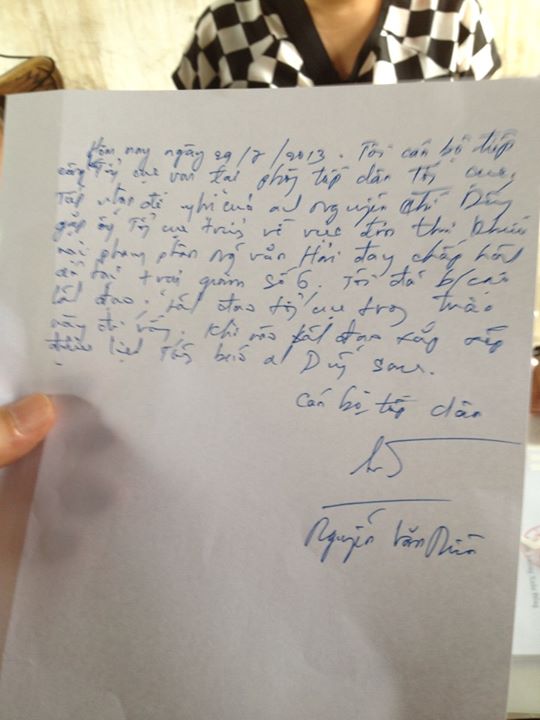 Hôm nay ngày 29/7/2013. Tôi cán bộ tiếp
công Tổng cục VIII tại phòng tiếp dân Tổng cục.
Tiếp nhận đề nghị của anh Nguyễn Trí Dũng
gặp Tổng cục trưởng về việc đơn thư khiếu
nại: phạm nhân Ng văn Hải đang chấp hành
án tại trại giam số 6. Tôi đã b/cáo
lãnh đạo. lãnh đạo Tổng cục trong
này đi vắng. Khi nào lãnh đạo sắp xếp
được lịch Tôi báo a Dũng sau.
Cán bộ tiếp dân
Nguyễn Văn